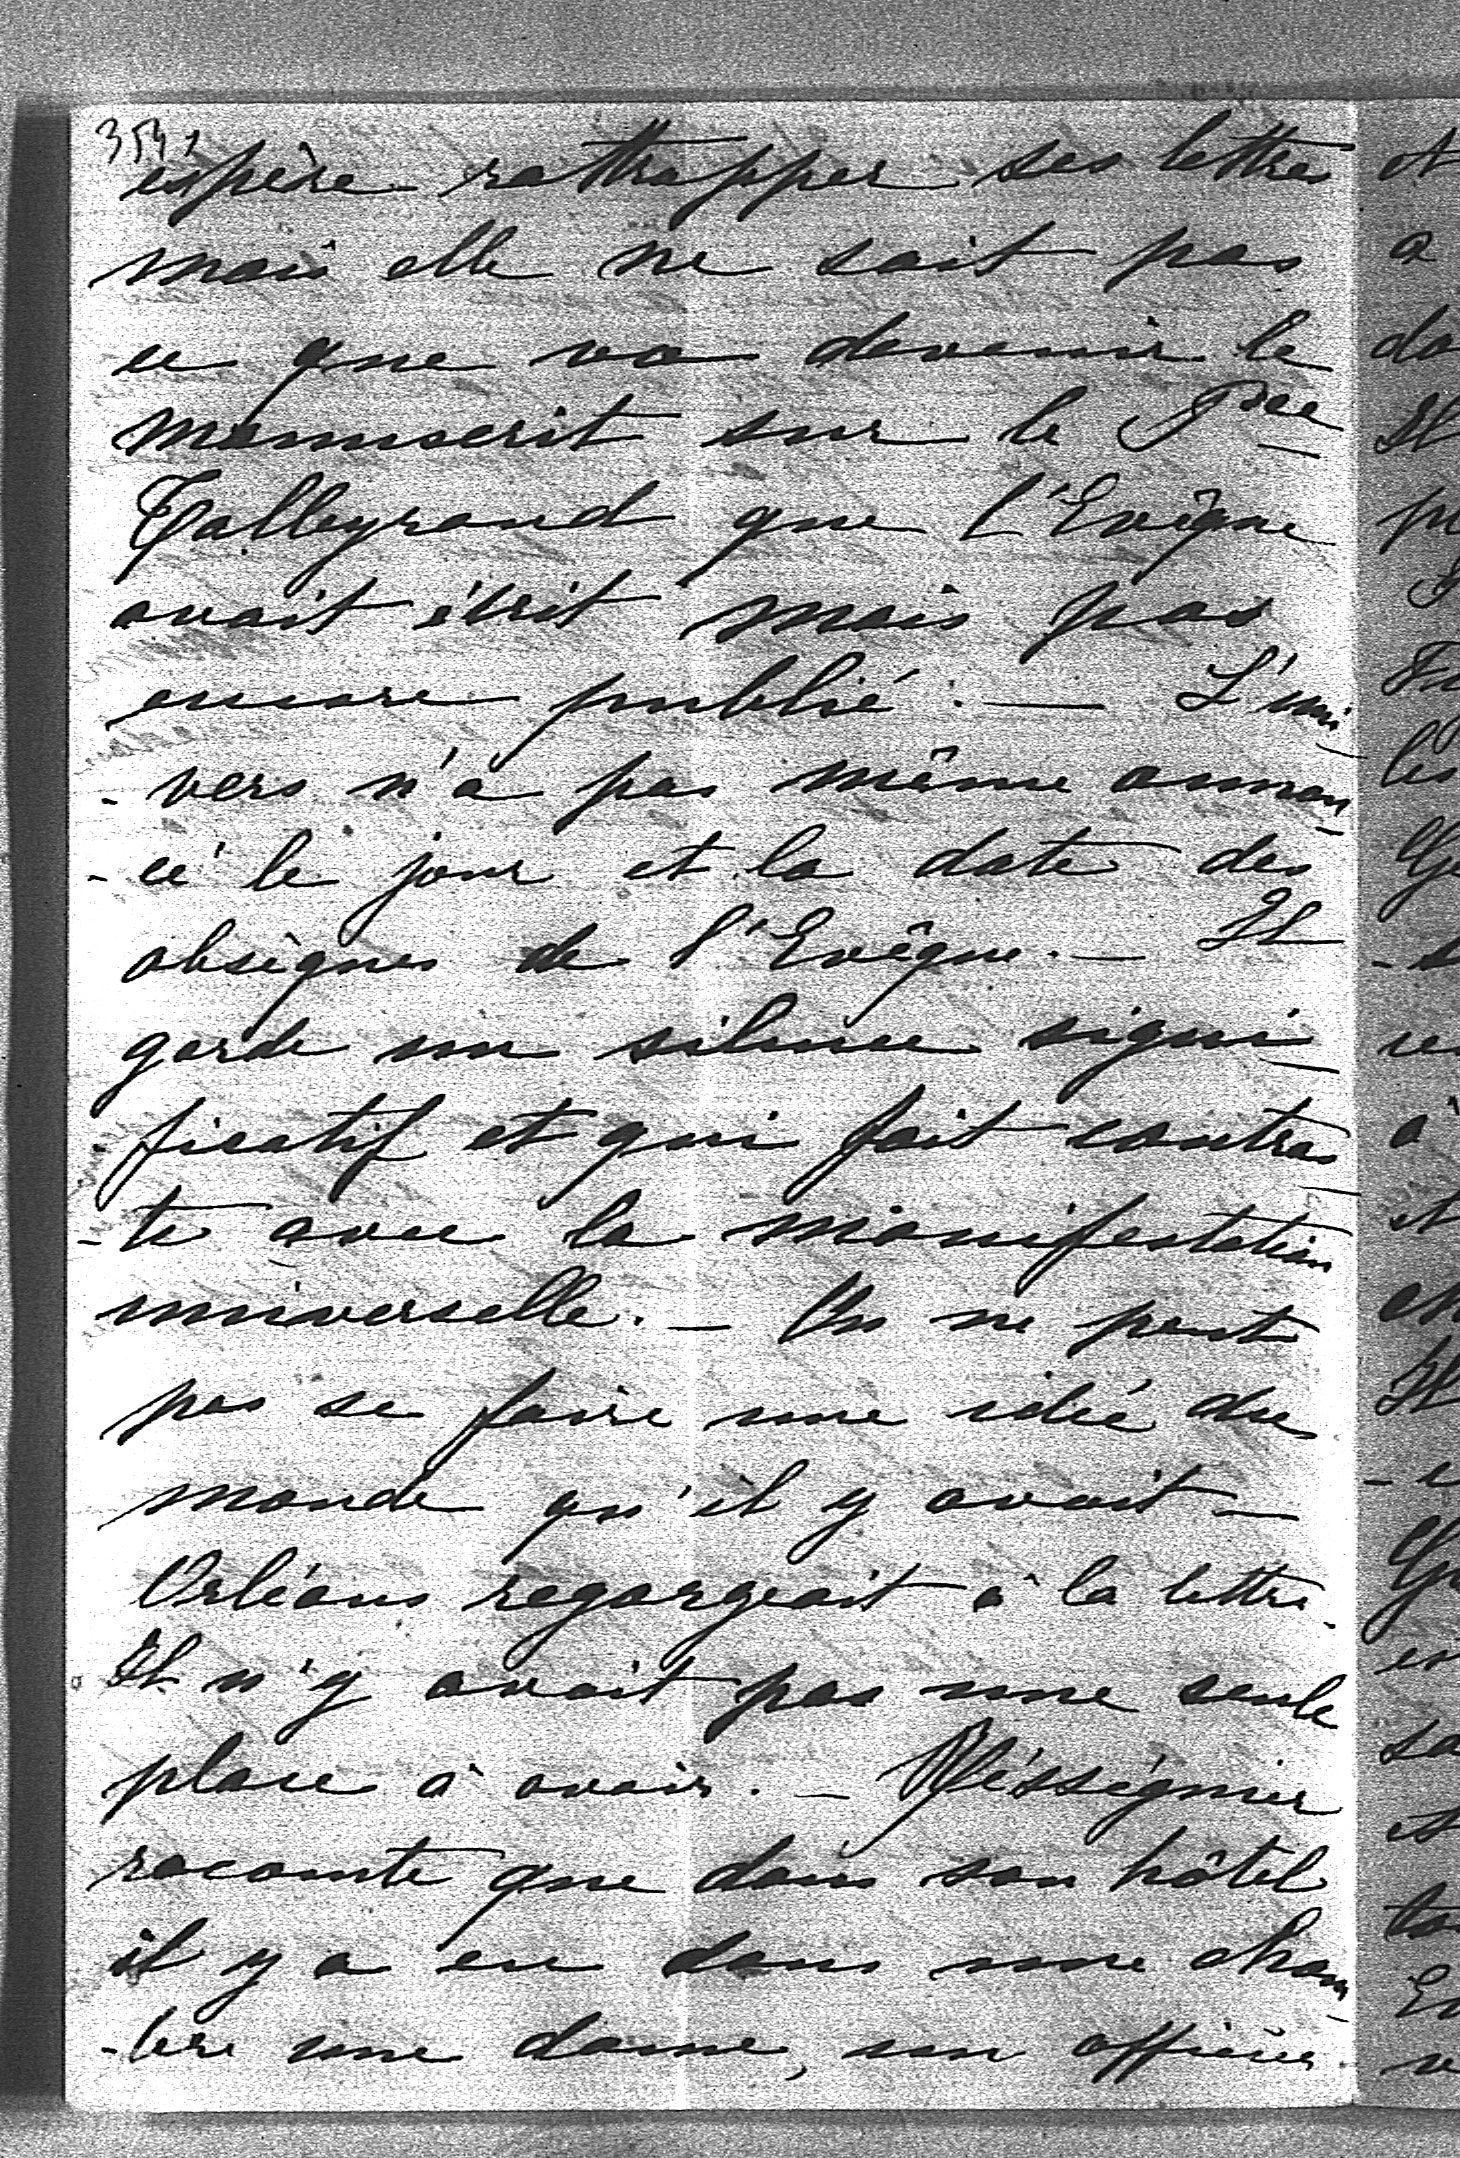 espère rattrapper ses lettres
mais elle ne sait pas
ce que va devenir le
manuscrit sur le Pce
Talleyrand que l'Evêque
avait écrit mais pas
encore publié. — L'uni
- vers n'a pas même annon
- cé le jour et la date des
obsèques de l'Evêque. — Il
garde un silence signi
ficatif et qui fait contras
- te avec la manifestation
universelle. — On ne peut
pas se faire une idée du
monde qu'il y avait —
Orléans regorgeait à la lettre.
Il n'y avait pas une seule
place à avoir. —
raconte que dans son hôtel
il y a eu dans une cham
- bre une dame, un officier